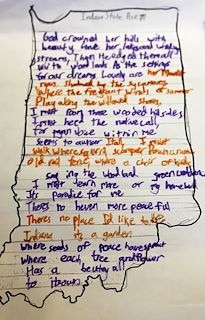 Indiana State Poem
God crowned her hills with
beauty, Gave her lakes and winding
streams, Then He edged them all
with woodlands As the settings
for our dreams. Lovely are her moonlit
rivers, Shadowed by the sycamores,
Where the fragrant winds of summer
Play along the willowed shores.
I must roam those wooded hillsides
I must heed the native call,
For a voice within me
Seems to answer it all, I must
walk where
old rail fence, where a choir of birds
sing in the woodland green
I must learn more of my homeland
It's Paradise for me
There's no haven more peaceful
There's no place I'd like to be
Indiana is a garden
where seeds of peace have sprout
where each tree and flower
Has a beauty all
to its own